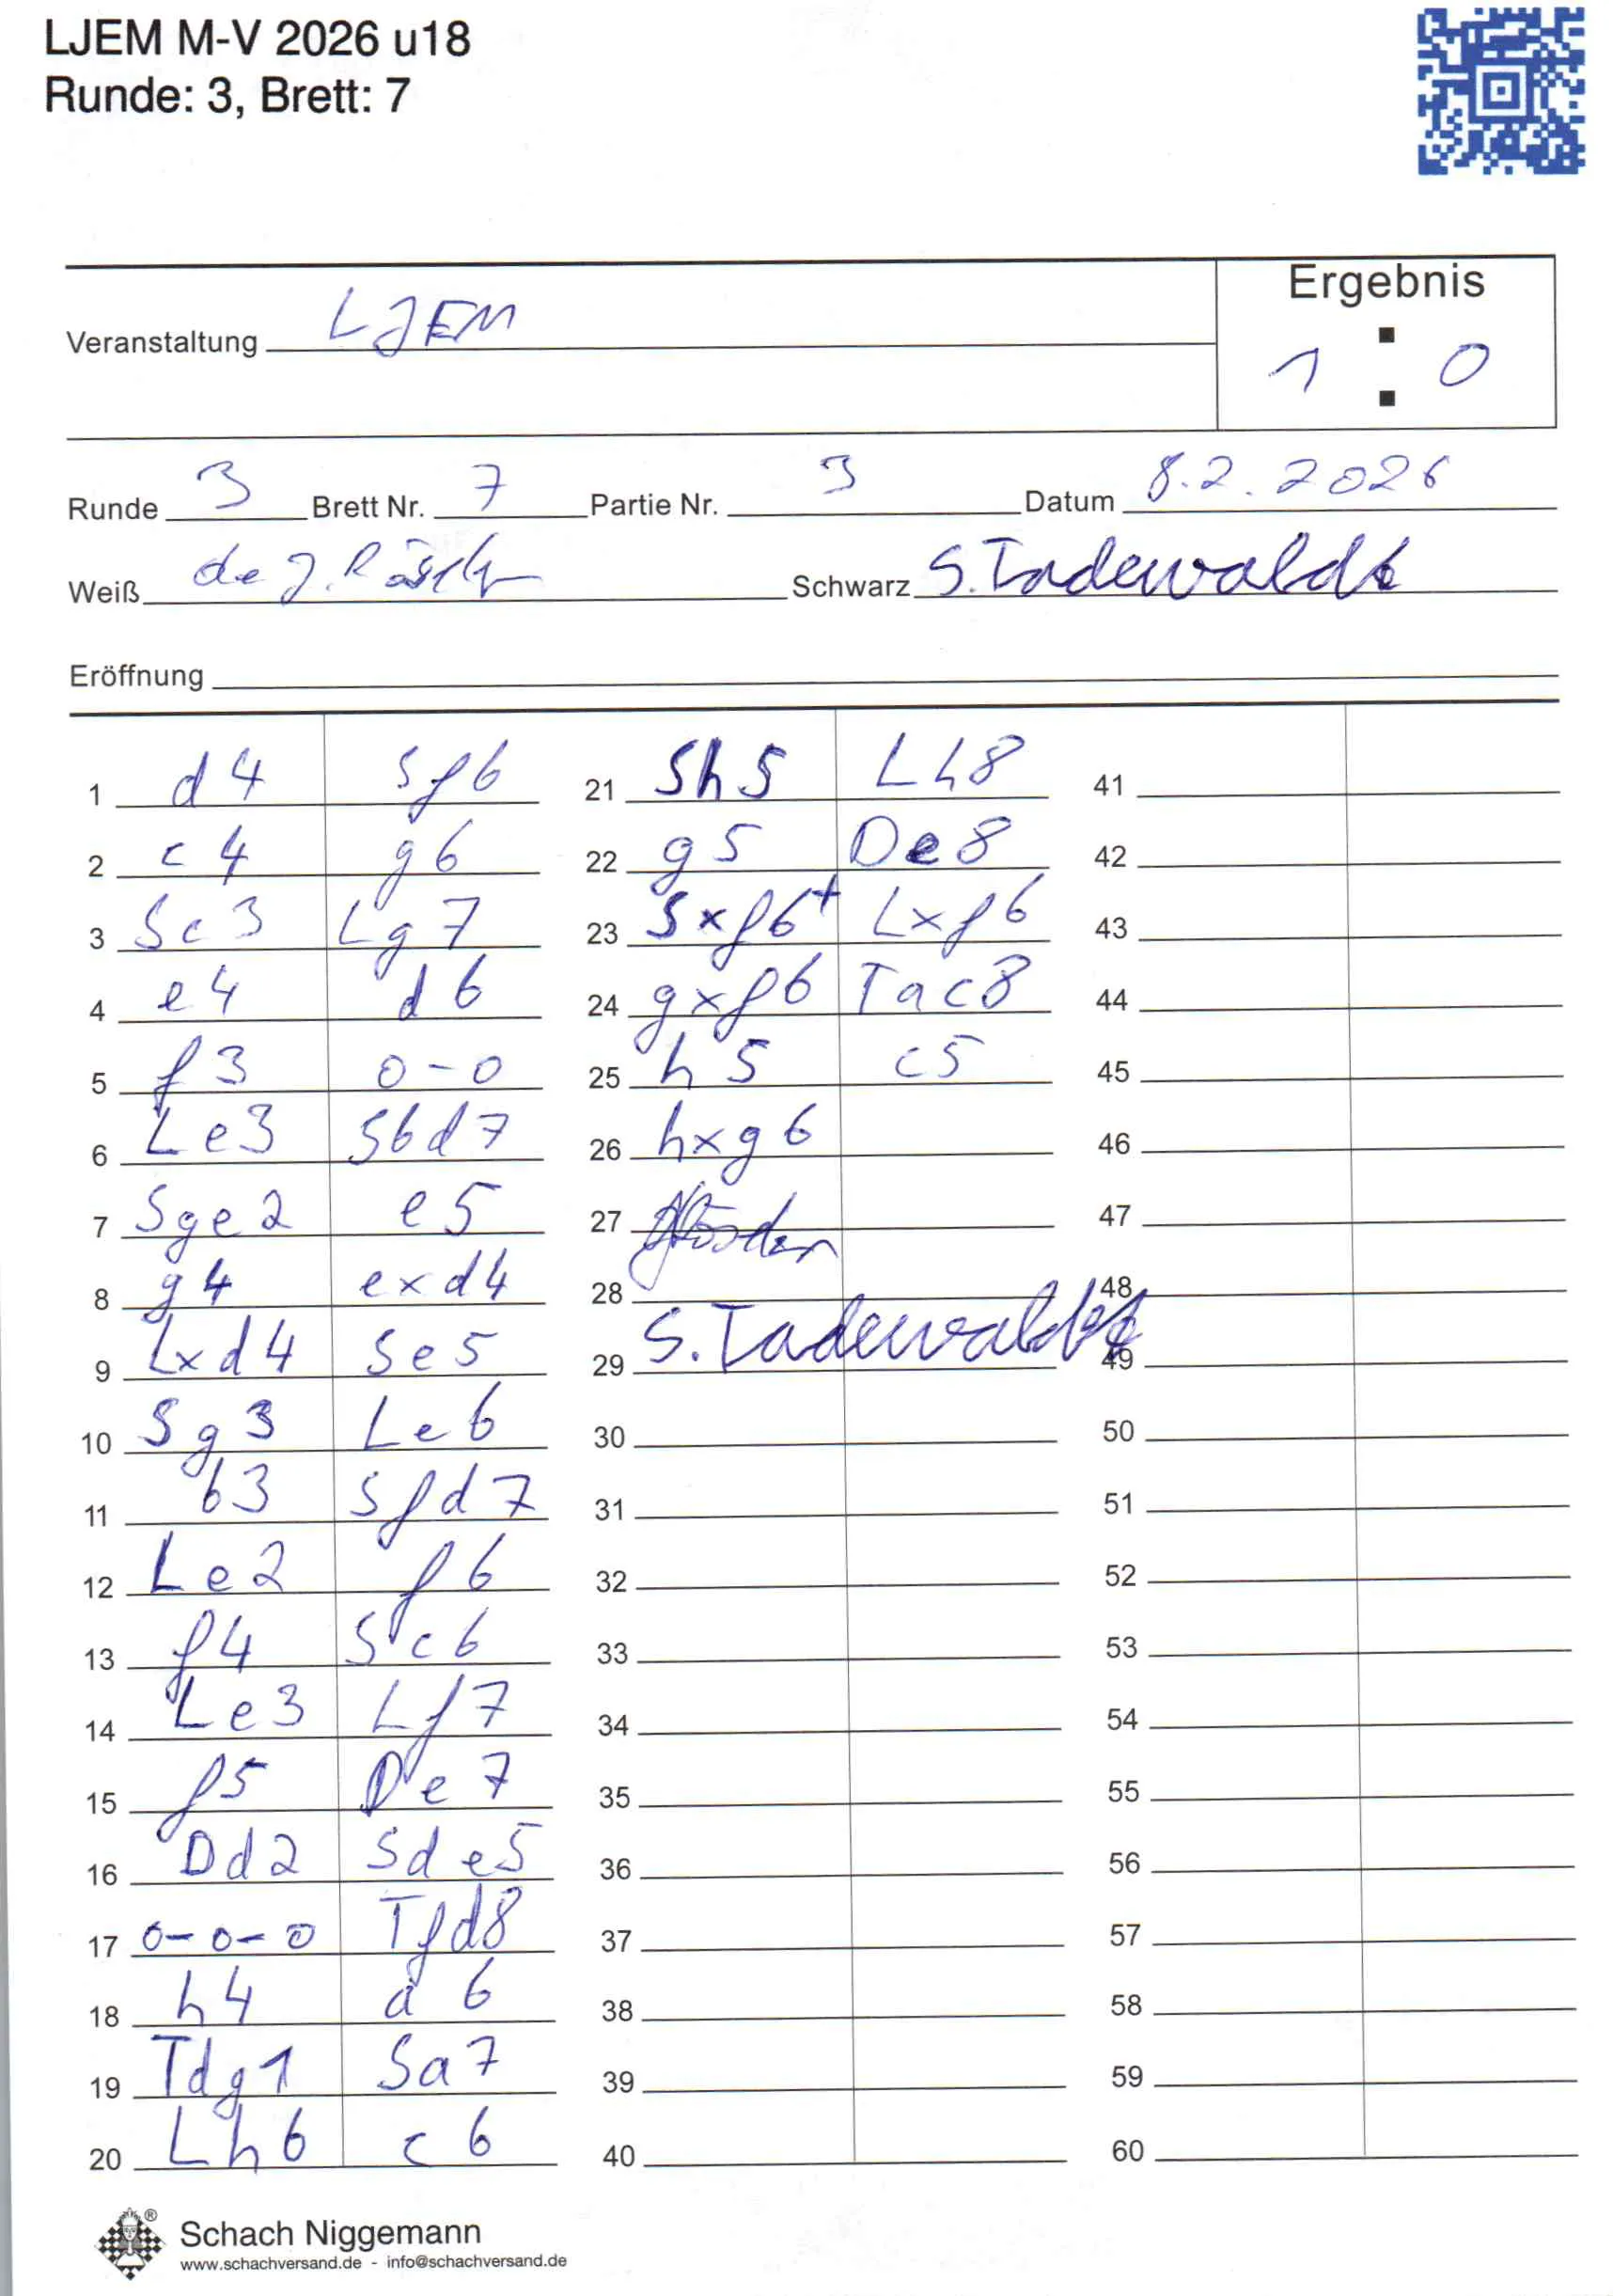 LJEM M-V 2026 u18
Runde: 3, Brett: 7
Ergebnis
Veranstaltung LJEM
1 : 0
Runde 3 Brett Nr. 7 Partie Nr. 3 Datum 8.2.2026
Weiß de J. Schwarz S. Tadewaldt
Eröffnung
1 d4 Sf6
2 c4 g6
3 Sc3 Lg7
4 e4 d6
5 f3 0-0
6 Le3 Sbd7
7 Sge2 e5
8 g4 exd4
9 Lxd4 Se5
10 Sg3 Le6
11 b3 Sfd7
12 Le2 f6
13 f4 Sc6
14 Le3 Lf7
15 f5 De7
16 Dd2 Sde5
17 0-0-0 Tfd8
18 h4 a6
19 Tdg1 Sa7
20 Lh6 c6
21 Sh5 Lh8
22 g5 De8
23 Sxf6+ Lxf6
24 gxf6 Tac8
25 h5 c5
26 hxg6
27
28
29 S. Tadewaldt
30
31
32
33
34
35
36
37
38
39
40
41
42
43
44
45
46
47
48
49
50
51
52
53
54
55
56
57
58
59
60
Schach Niggemann
www.schachversand.de - info@schachversand.de